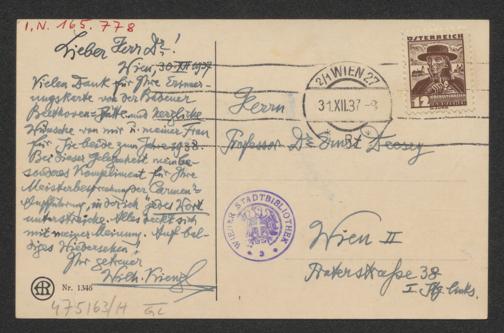 I.N. 165.778
Lieber Herr Dr!
Wien, 30 XII 1937
Vielen Dank für Ihre Erinne-
rungskarte von der Badener
Beethoven-Hütte und herzliche
Wünsche von mir u. meiner Frau
für Sie beide zum Jahre 1938.
Bei dieser Gelegenheit mein be-
sonderes Kompliment für Ihre
Meisterbesprechung der Carmen=
Aufführung, in der ich jedes Wort
unterstreiche. Alles deckt sich
mit meiner Meinung. Auf bal-
diges Wiedersehen!
Ihr getreuer
Wilh. Kienzl
Nr. 1346
475163/H
ÖSTERREICH
12
2/1 WIEN 27
31.XII.37
Herrn
Professor Dr Ernst Decsey
WIENER STADTBIBLIOTHEK
Wien II
Praterstraße 38
I. Stg. links.